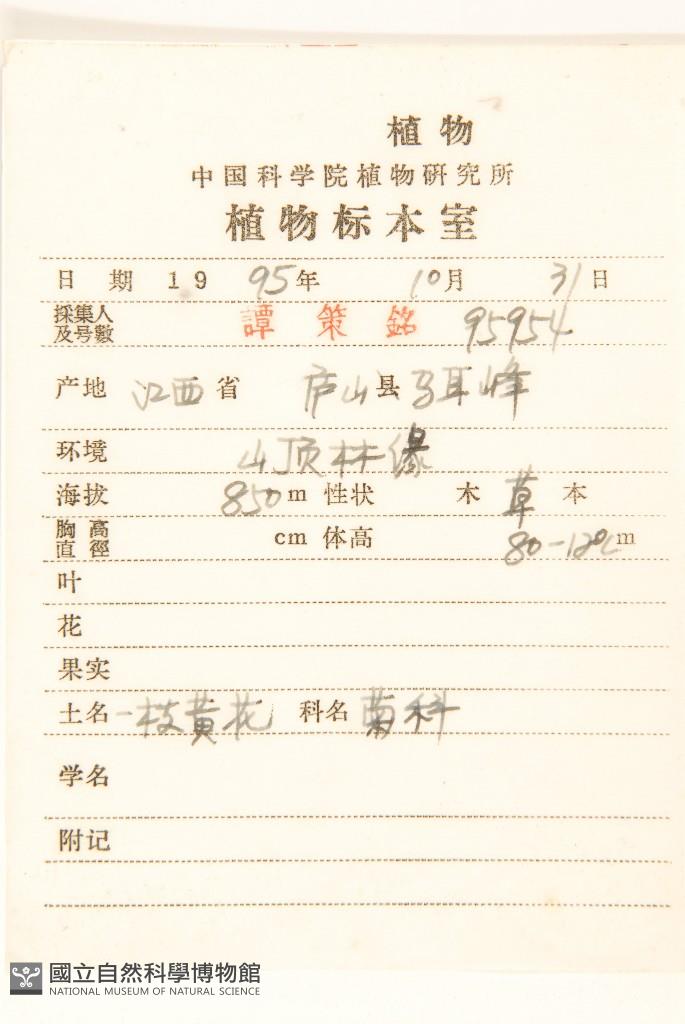 植物
中国科学院植物研究所
植物标本室
日期 19 95年 10月 31日
採集人及号數 譚策銘 95954
产地 江西省 庐山县马耳峰
环境 山顶林缘
海拔 850m 性状 木 草 本
胸高直徑 cm 体高 80-120cm
叶
花
果实
土名 一枝黄花 科名 菊科
学名
附记
國立自然科學博物館
NATIONAL MUSEUM OF NATURAL SCIENCE